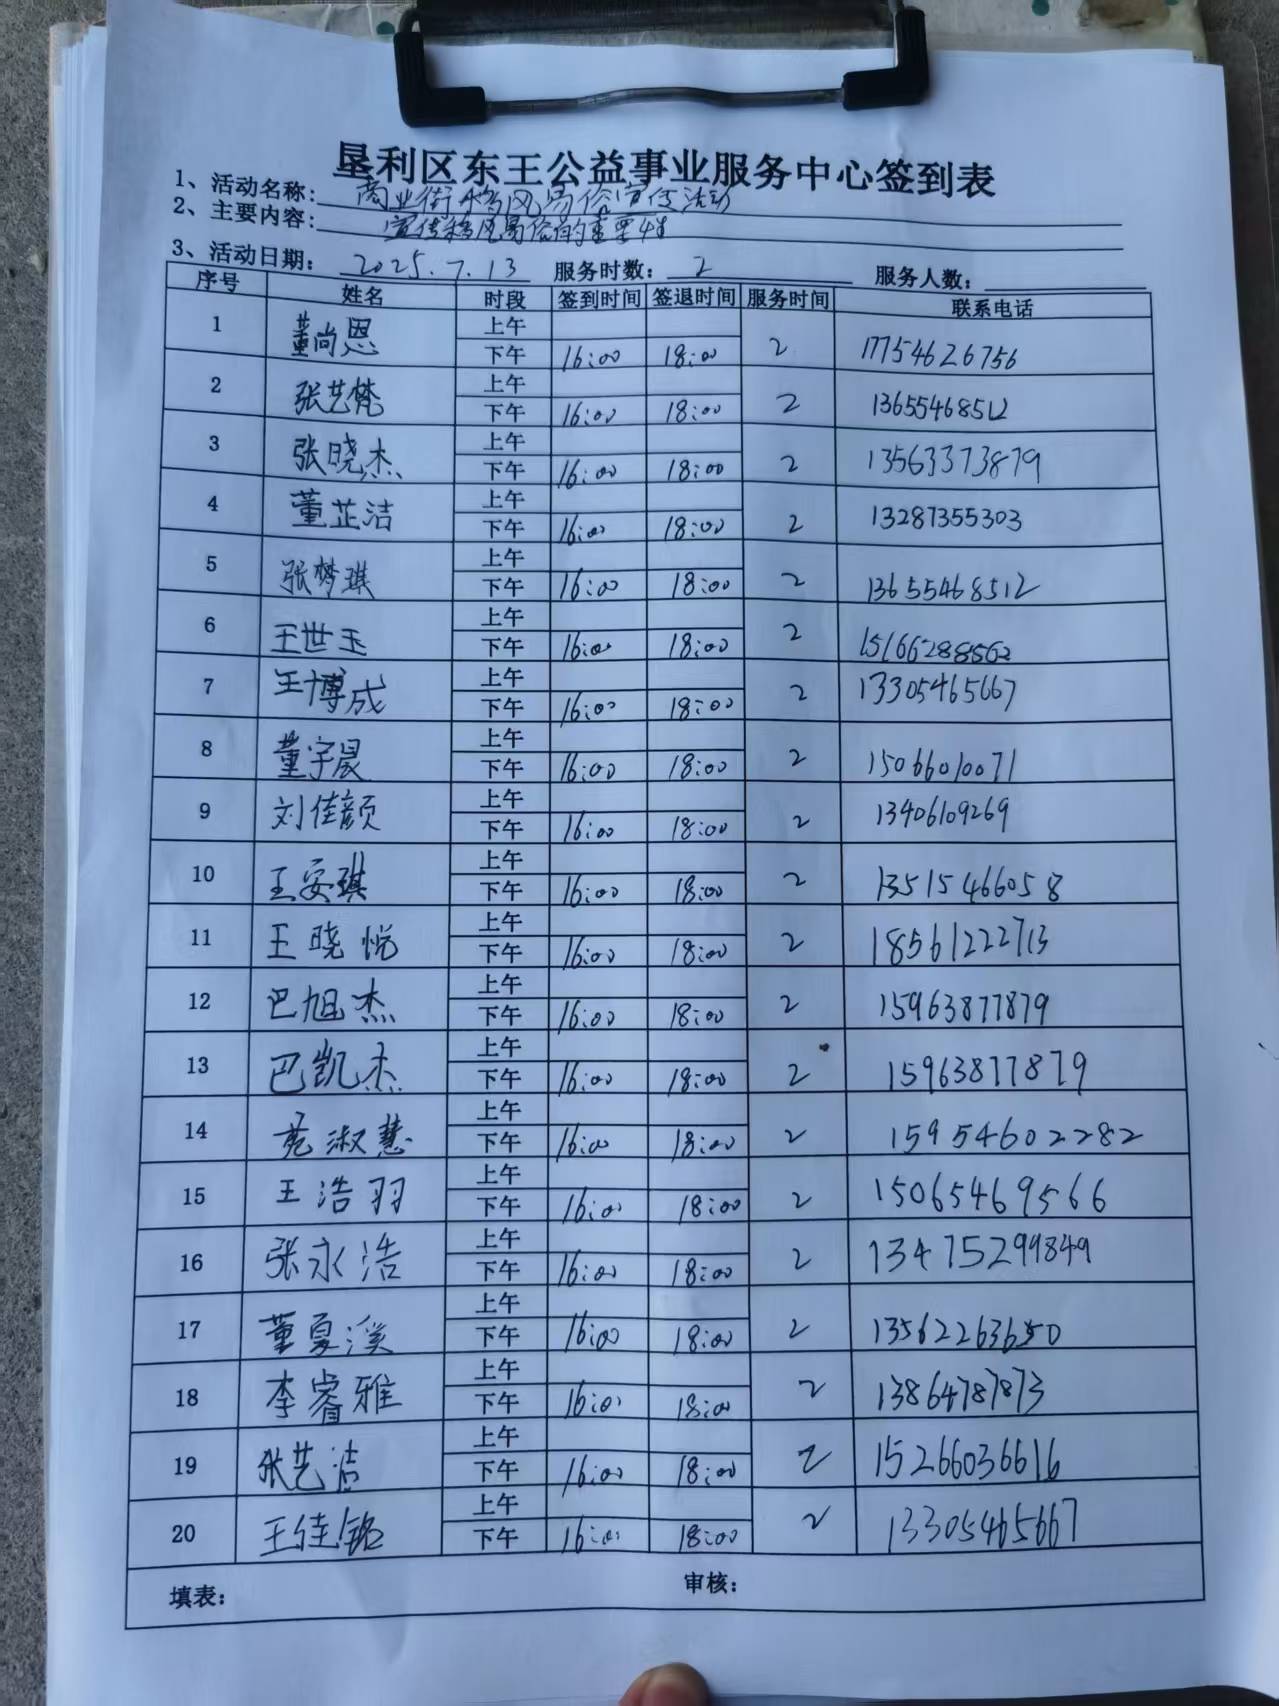 垦利区东王公益事业服务中心签到表
1、活动名称：商业街移风易俗宣传活动
2、主要内容：宣传移风易俗的重要性
3、活动日期：2025.7.13 服务时数：2 服务人数：
序号 姓名 时段 签到时间 签退时间 服务时间 联系电话
1 董尚恩 上午 2 17754626756
下午 16:00 18:00
2 张艺梵 上午 2 13655468512
下午 16:00 18:00
3 张晓杰 上午 2 13563373879
下午 16:00 18:00
4 董芷洁 上午 2 13287355303
下午 16:00 18:00
5 张梦琪 上午 2 13655468512
下午 16:00 18:00
6 王世玉 上午 2 15166288562
下午 16:00 18:00
7 王博成 上午 2 13305465667
下午 16:00 18:00
8 董宇晨 上午 2 15066010071
下午 16:00 18:00
9 刘佳颜 上午 2 13406109269
下午 16:00 18:00
10 王安琪 上午 2 13515466058
下午 16:00 18:00
11 王晓悦 上午 2 18561222713
下午 16:00 18:00
12 巴旭杰 上午 2 15963877879
下午 16:00 18:00
13 巴凯杰 上午 2 15963877879
下午 16:00 18:00
14 苑淑慧 上午 2 15954602282
下午 16:00 18:00
15 王浩羽 上午 2 15065469566
下午 16:00 18:00
16 张永浩 上午 2 13475299849
下午 16:00 18:00
17 董夏溪 上午 2
下午 16:00 18:00
18 李睿雅 上午 2 13864787873
下午 16:00 18:00
19 张艺洁 上午 2 15266036616
下午 16:00 18:00
20 王佳铭 上午 2 13305465667
下午 16:00 18:00
填表： 审核：